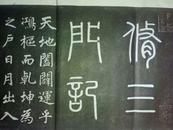 脩三
門記
天地闔闢運乎
鴻樞而乾坤為
之戶日月出入